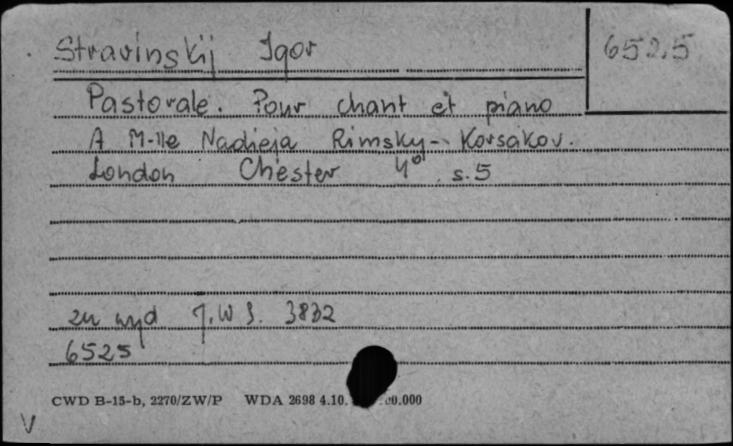 Stravinskij Igor 6525
Pastorale. Pour chant et piano
A M-lle Nadieja Rimsky-Korsakov.
London Chester 4° s.5
zn wyd J.W.S. 3832
6525
CWD B-15-b, 2270/ZW/P WDA 2698 4.10. 00.000
V